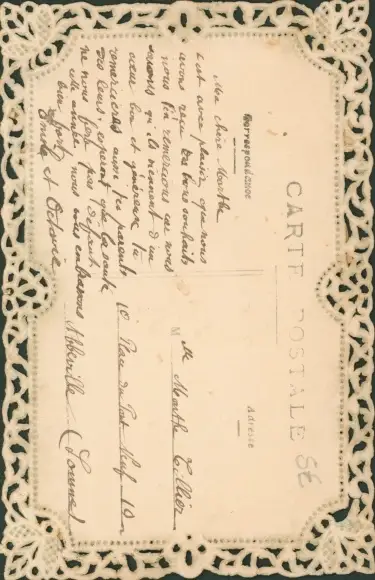 CARTE POSTALE
Correspondance
Ma chère Marthe
c'est avec plaisir que nous
avons reçu tes bons souhaits
nous t'en remercions car nous
savons qu'ils viennent d'un
cœur bon et généreux tu
remercieras aussi tes parents
des leurs, espérant que la santé
ne nous fera pas défaut
cette année nous vous embrassons
bien fort
et Octavie
Adresse
M lle Marthe Tellier
10 Place du Pont Neuf 10
Abbeville (Somme)